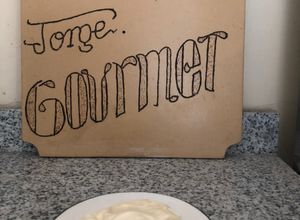 Jorge.
Gourmet